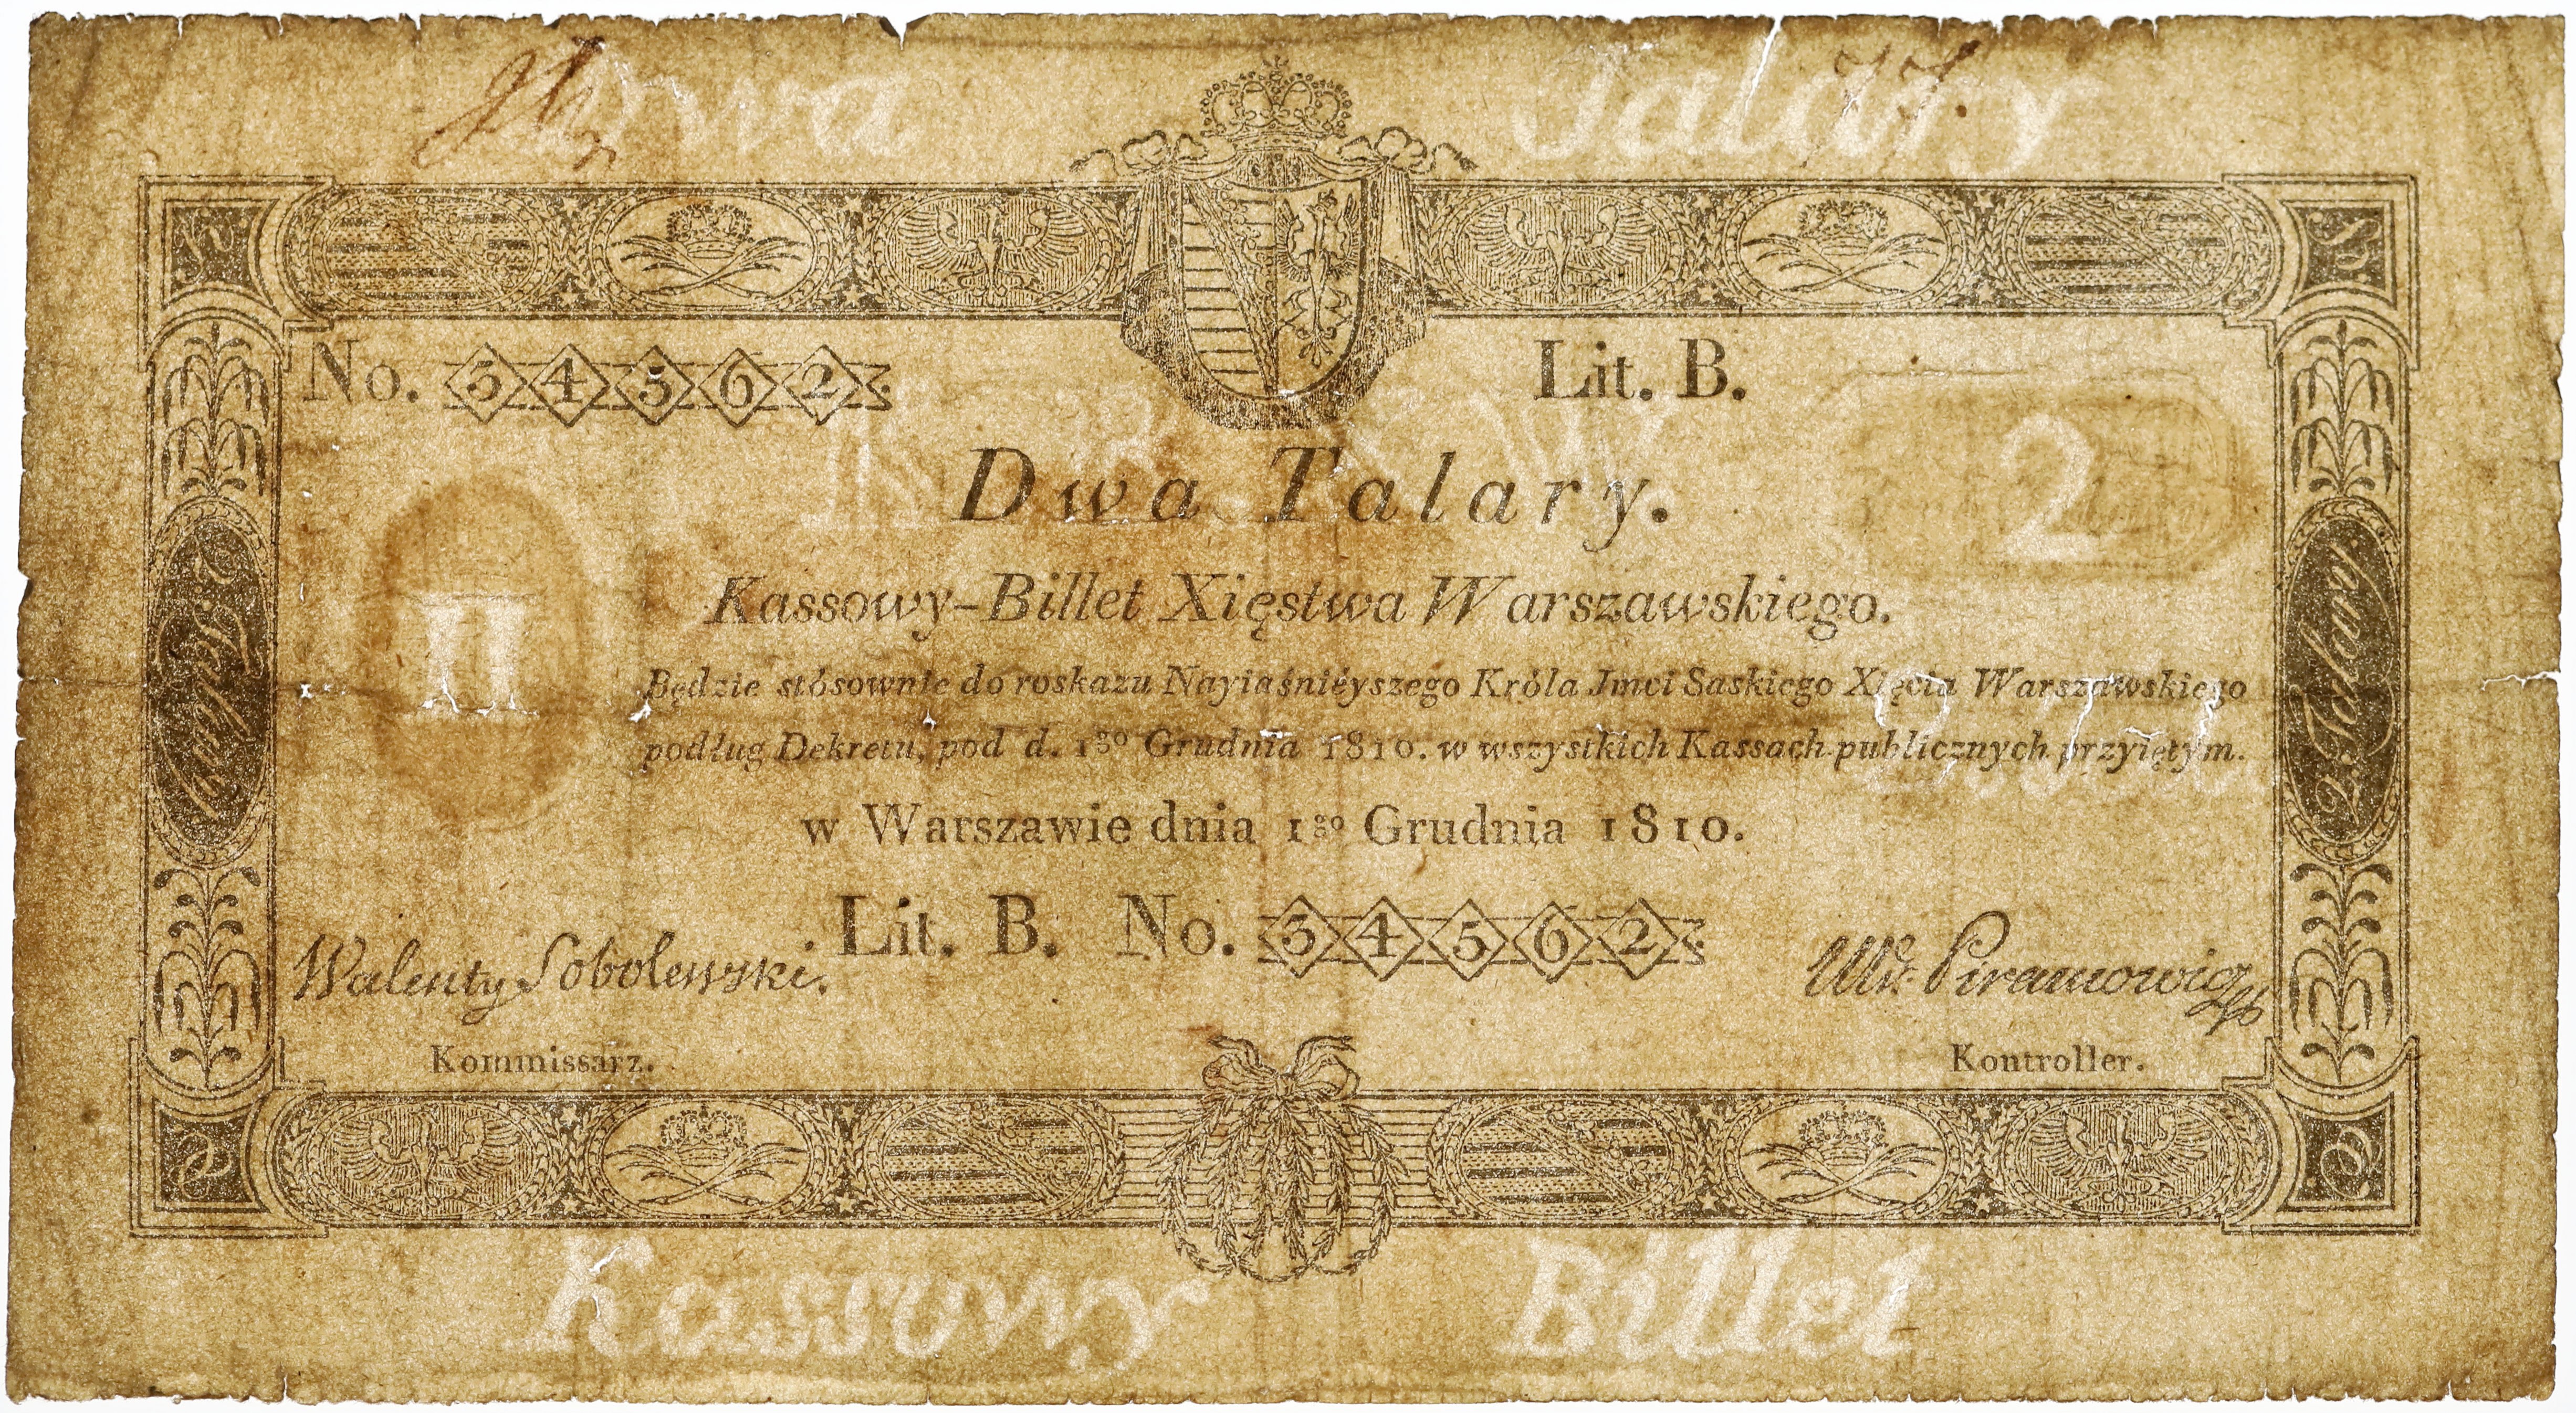 Dwa Talary
No. 54562 Lit. B.
2
Dwa Talary.
Kassowy-Billet Xięstwa Warszawskiego.
II
Będzie stósownie do roskazu Nayiaśniéyszego Króla Jmci Saskiego Xięcia Warszawskiego
podług Dekretu, pod d. 1go Grudnia 1810. w wszystkich Kassach publicznych przyiętym.
2. Talary
2. Talary
w Warszawie dnia 1go Grudnia 1810.
Lit. B. No. 54562
Walenty Sobolewski.
Piramowicz
Kommissarz. Kontroller.
Kassowy Billet